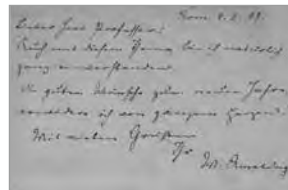 Rom 4. 2. 09.
Lieber Herr Professor!
Auch mit diesem Plane bin ich natürlich
ganz einverstanden.
Die guten Wünsche zum neuen Jahre
erwidere ich von ganzem Herzen.
Mit vielen Grüßen
Ihr
W. Amelung